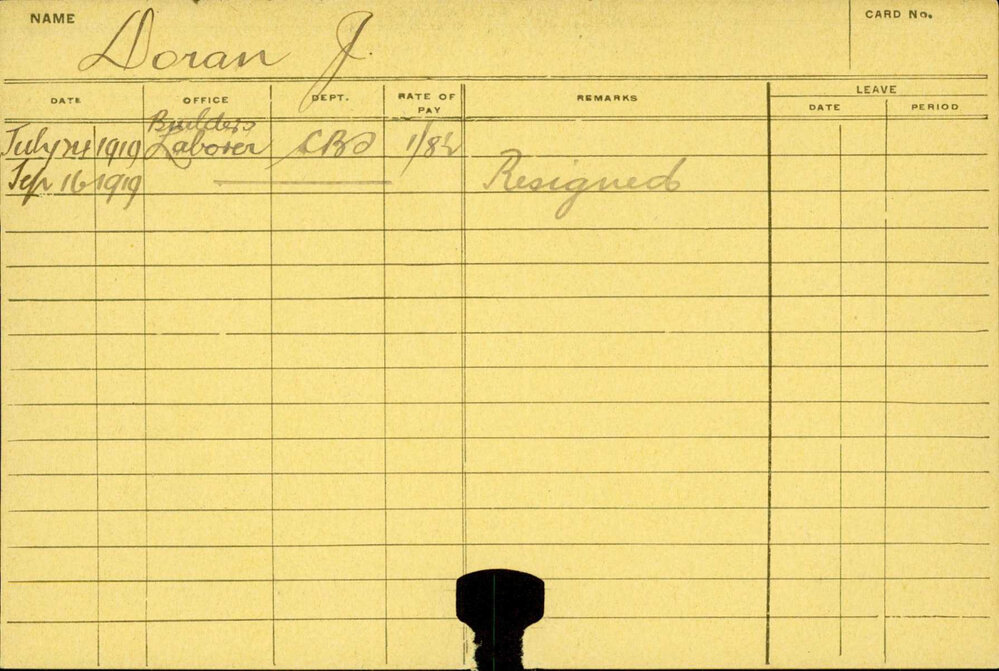 NAME
Doran J.
CARD No.
DATE OFFICE DEPT. RATE OF PAY REMARKS LEAVE
DATE PERIOD
Builders
July 24 1919 Laborer 1/8½
Sep 16 1919 Resigned